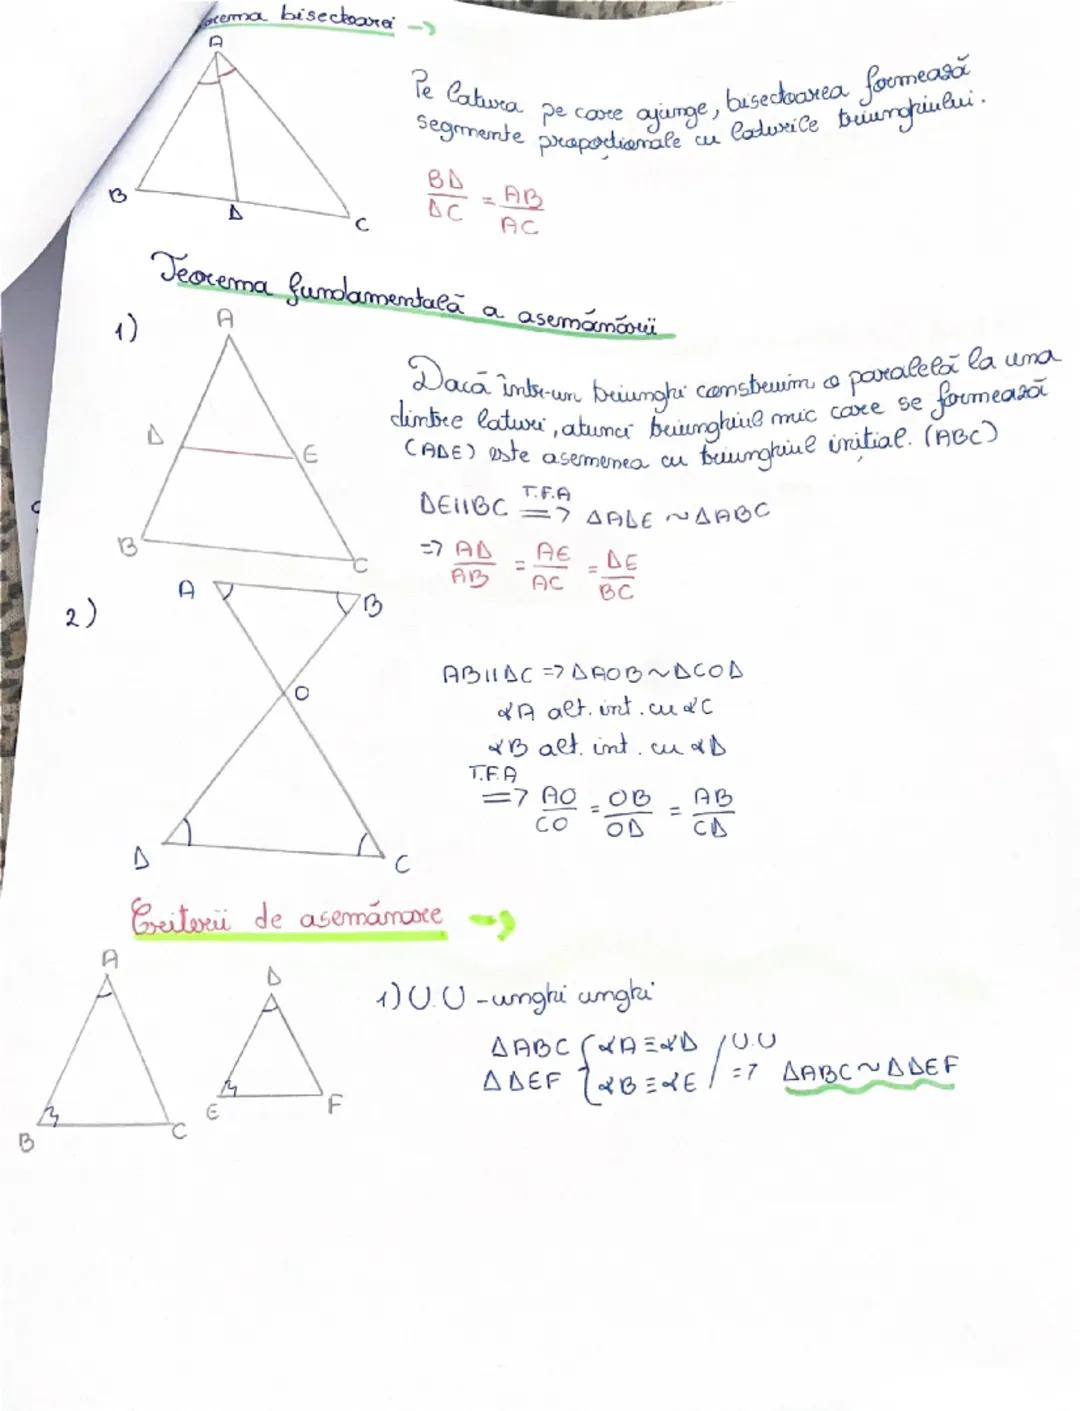 orema bisectoarei →
A
B
D
C
Pe latura pe care ajunge, bisectoarea formează
segmente proporționale cu laturile triunghiului.
BD/DC = AB/AC
Teorema fundamentală a asemănării
1)
A
D
E
B
C
Dacă într-un triunghi construim o paralelă la una
dintre laturi, atunci triunghiul mic care se formează
(ADE) este asemenea cu triunghiul inițial. (ABC)
DE||BC T.F.A => ΔADE ~ ΔABC
=> AD/AB = AE/AC = DE/BC
2)
A
B
O
D
C
AB||DC => ΔAOB ~ ΔCOD
∢A alt. int. cu ∢C
∢B alt. int. cu ∢D
T.F.A
=> AO/CO = OB/OD = AB/CD
Criterii de asemănare →
A
B
C
D
E
F
1) U.U - unghi unghi
ΔABC { ∢A ≡ ∢D / U.U
ΔDEF { ∢B ≡ ∢E / => ΔABC ~ ΔDEF